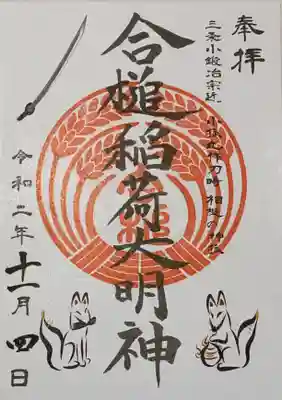 奉拝
三条小鍛冶宗近 小狐丸作刀時 相槌の神社
合槌稲荷大明神
令和二年十一月四日